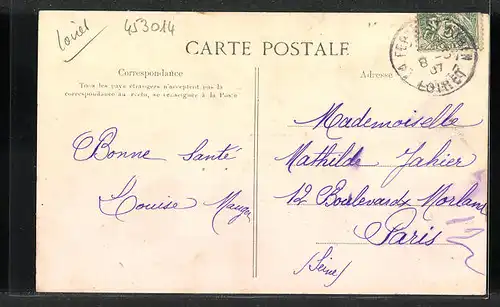 Loiret
453014
CARTE POSTALE
Correspondance
Tous les pays étrangers n'acceptent pas la
correspondance au recto, se renseigner à la Poste
Adresse
LA FER
8
07
LOIRET
Bonne Santé
Louise Mauger
Mademoiselle
Mathilde Jahier
12 Boulevard Morland
Paris
(Seine)